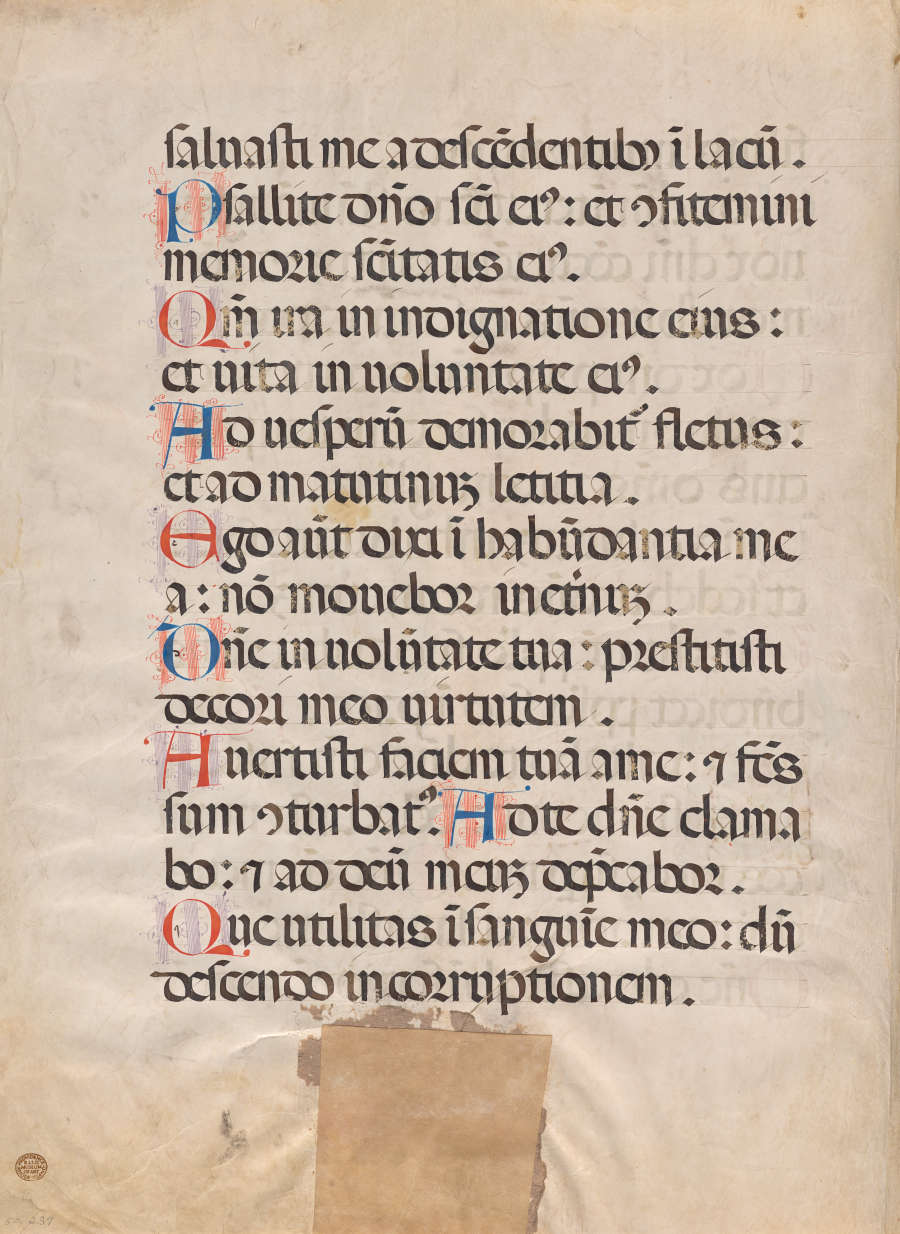 saluasti me a descēdentibꝰ ī lacū .
Psallite dn̄o sc̄i eiꝰ : et ꝯfitemini
memorie sc̄itatis eiꝰ .
Qm̄ ira in indignatione eius :
et uita in uoluntate eiꝰ .
Ad uesperū demorabit᷑ fletus :
et ad matutinuꝫ letitia .
Ego aūt dixi ī habūdantia me
a : nō mouebor in et̄nuꝫ .
Dn̄e in uolūtate tua : prestitisti
decori meo uirtutem .
Auertisti faciem tuā a me : ⁊ fc̄s
sum ꝯturbatꝰ . Ad te dn̄e clama
bo : ⁊ ad deū meuꝫ dep̄cabor .
Que utilitas ī sanguīe meo : dū
descendo in corruptionem .